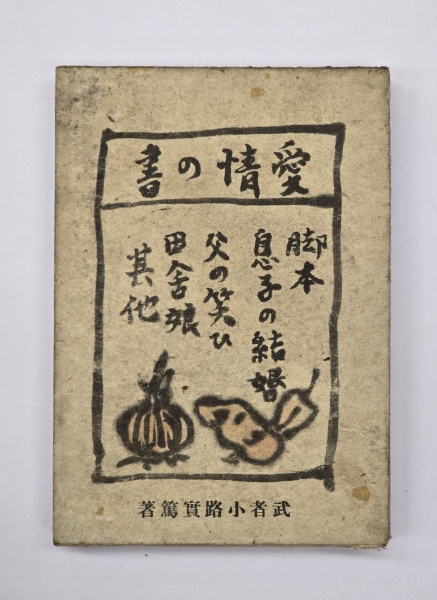 愛情の書
脚本
息子の結婚
父の笑ひ
田舎娘
其他
武者小路實篤著